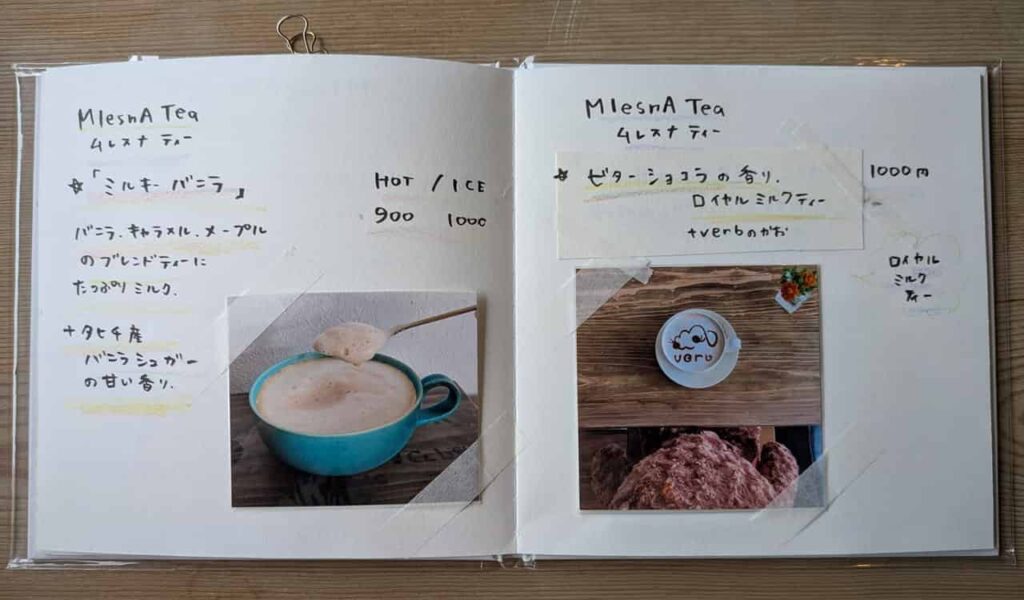 MlesnA Tea
ムレスナ ティー
☆「ミルキー バニラ」
HOT / ICE
900 1000
バニラ、キャラメル、メープル
のブレンドティーに
たっぷり ミルク.
+ タヒチ産
バニラ シュガー
の甘い香り.
MlesnA Tea
ムレスナ ティー
☆ ビター ショコラの香り.
ロイヤル ミルクティー
+verbのかお
1000円
ロイヤル
ミルク
ティー
verb